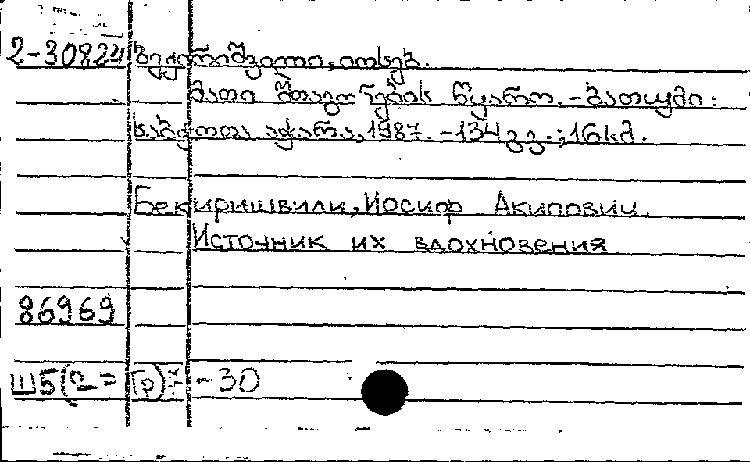 2-30824 ბექირიშვილი, იოსებ.
მათი შთაგონების წყარო. - ბათუმი:
საბჭოთა აჭარა, 1987. - 134 გვ.; 16 სმ.
Бекиришвили, Иосиф Акипович.
Источник их вдохновения
86969
ШБ(2=Гр)7-30